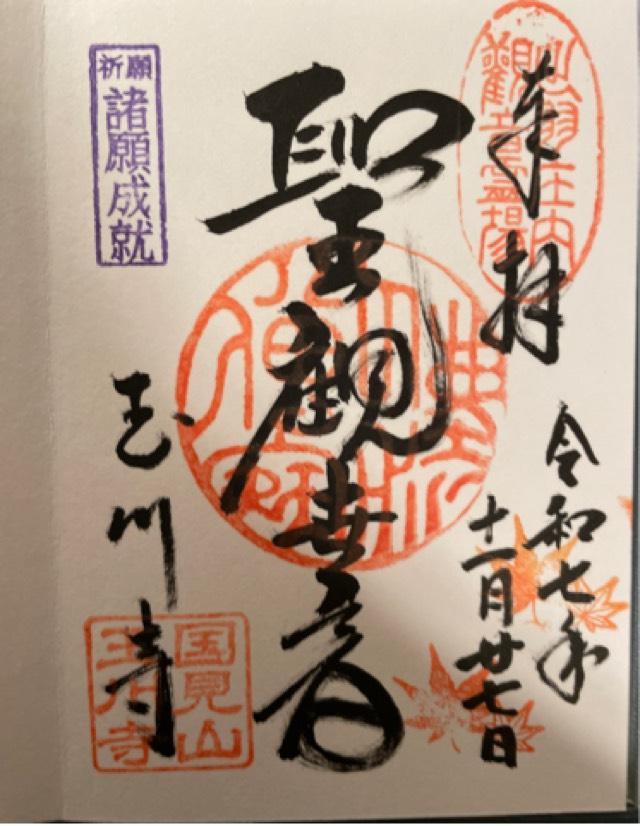 奉拝
令和七年
十一月廿七日
聖観世音
祈願
諸願成就
玉川寺
国見山
玉川寺